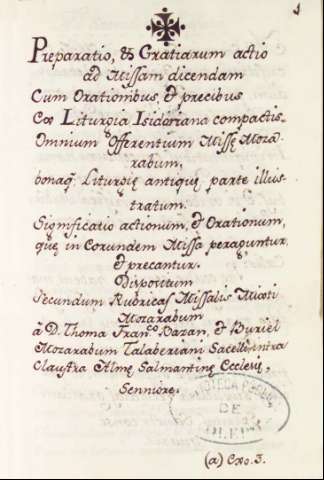 1
Preparatio, & Gratiarum actio
ad Missam dicendam
Cum Orationibus, & precibus
Liturgia Isidoriana compactis.
Omnium Offerentium Missę Moza-
rabum,
bonaq̃ Liturgię antiquę parte illus-
tratum.
Significatio actionum, & Orationum,
quę in eorundem Missa peraguntur,
& precantur.
Dispositum
Secundum Rubricas Missalis Mixti
Mozarabum
à D. Thoma Fran.co Bazan, & Buriel
Mozarabum Talaberiani Sacelli, intra
Claustra Almę Salmantinę Ecclesię,
Senniore.
BIBLIOTECA PUBLICA
DE
TOLEDO
(a) Exo. 3.